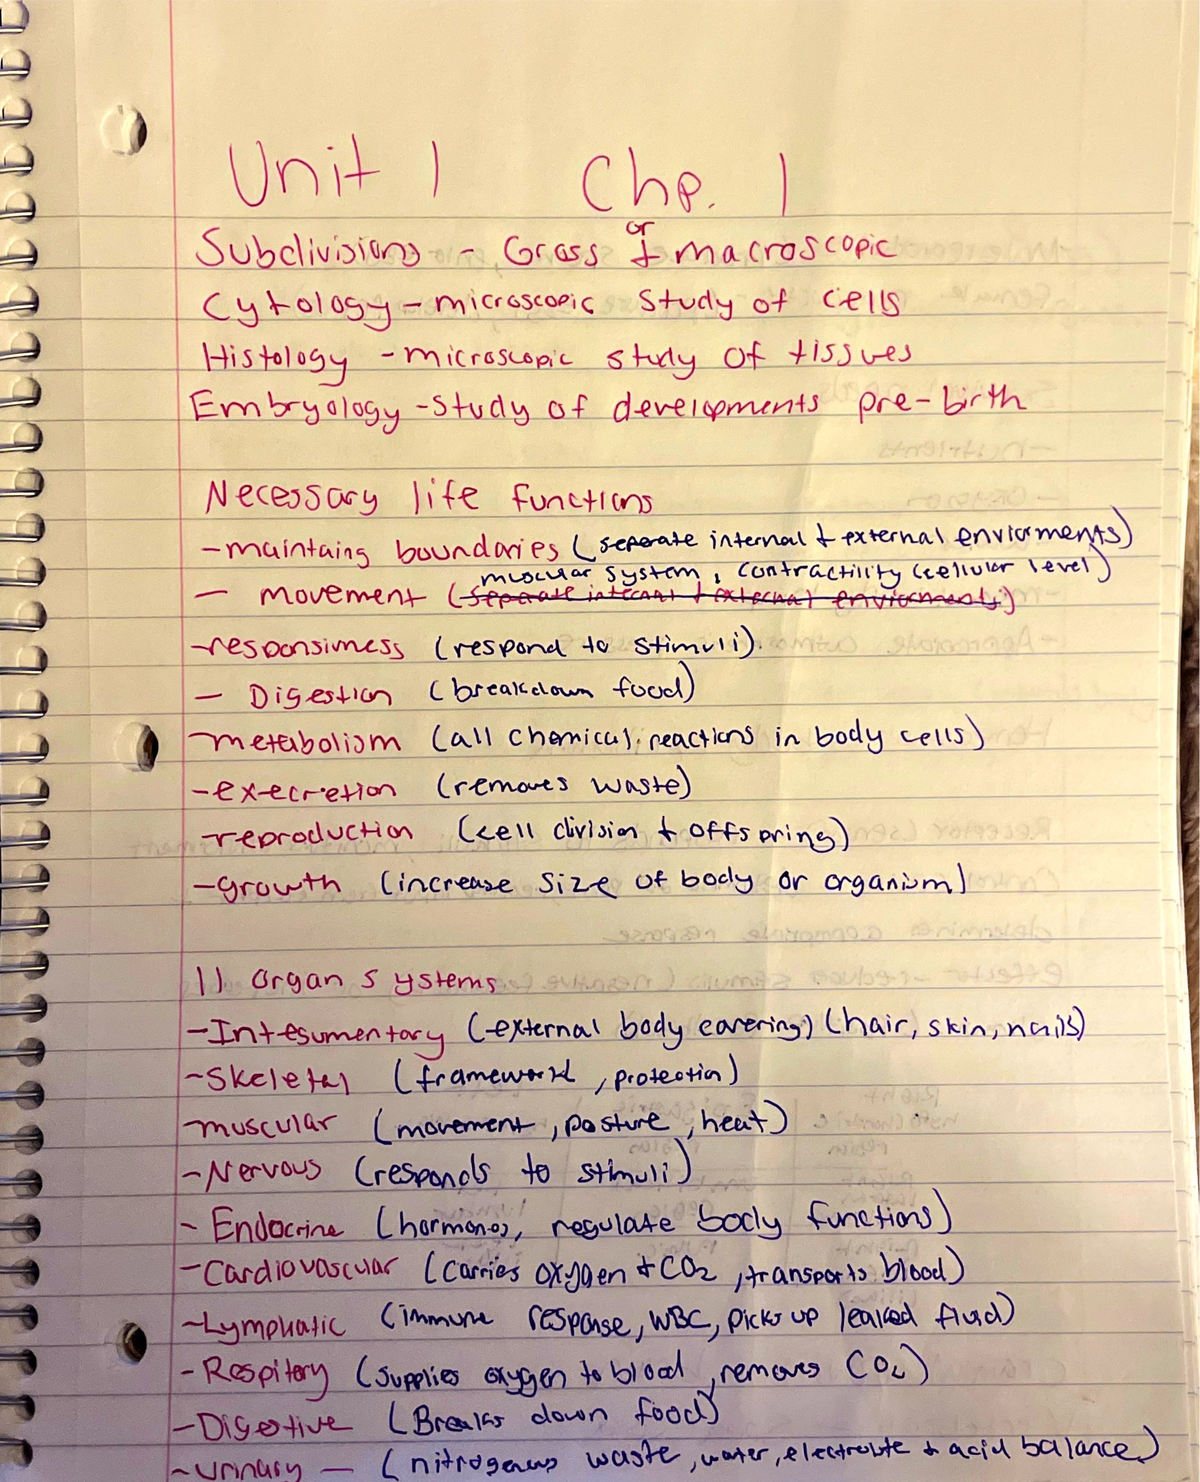 Unit 1 Chp. 1
Subdivisions - Gross or + macroscopic
Cytology - microscopic study of cells
Histology - microscopic study of tissues
Embryology - Study of developments pre-birth
Necessary life functions
- maintaing boundaries (seperate internal + external enviorments)
muscular system, contractility (cellular level)
- movement (seperate internal + external enviorments)
- responsivness (respond to stimuli)
- Digestion (breakdown food)
- metabolism (all chemical reactions in body cells)
- execretion (removes waste)
- reproduction (cell division + offspring)
- growth (increase size of body or organism)
11 organ systems
- Intesumentary (external body covering) (hair, skin, nails)
- Skeletal (framework, protection)
- muscular (movement, posture, heat)
- Nervous (responds to stimuli)
- Endocrine (hormones, regulate body functions)
- Cardiovascular (carries oxygen + CO2, transports blood)
- Lymphatic (immune response, WBC, picks up leaked fluid)
- Respitory (supplies oxygen to blood, removes CO2)
- Digestive (Breaks down food)
- urinary - (nitrogenous waste, water, electrolute + acid balance)